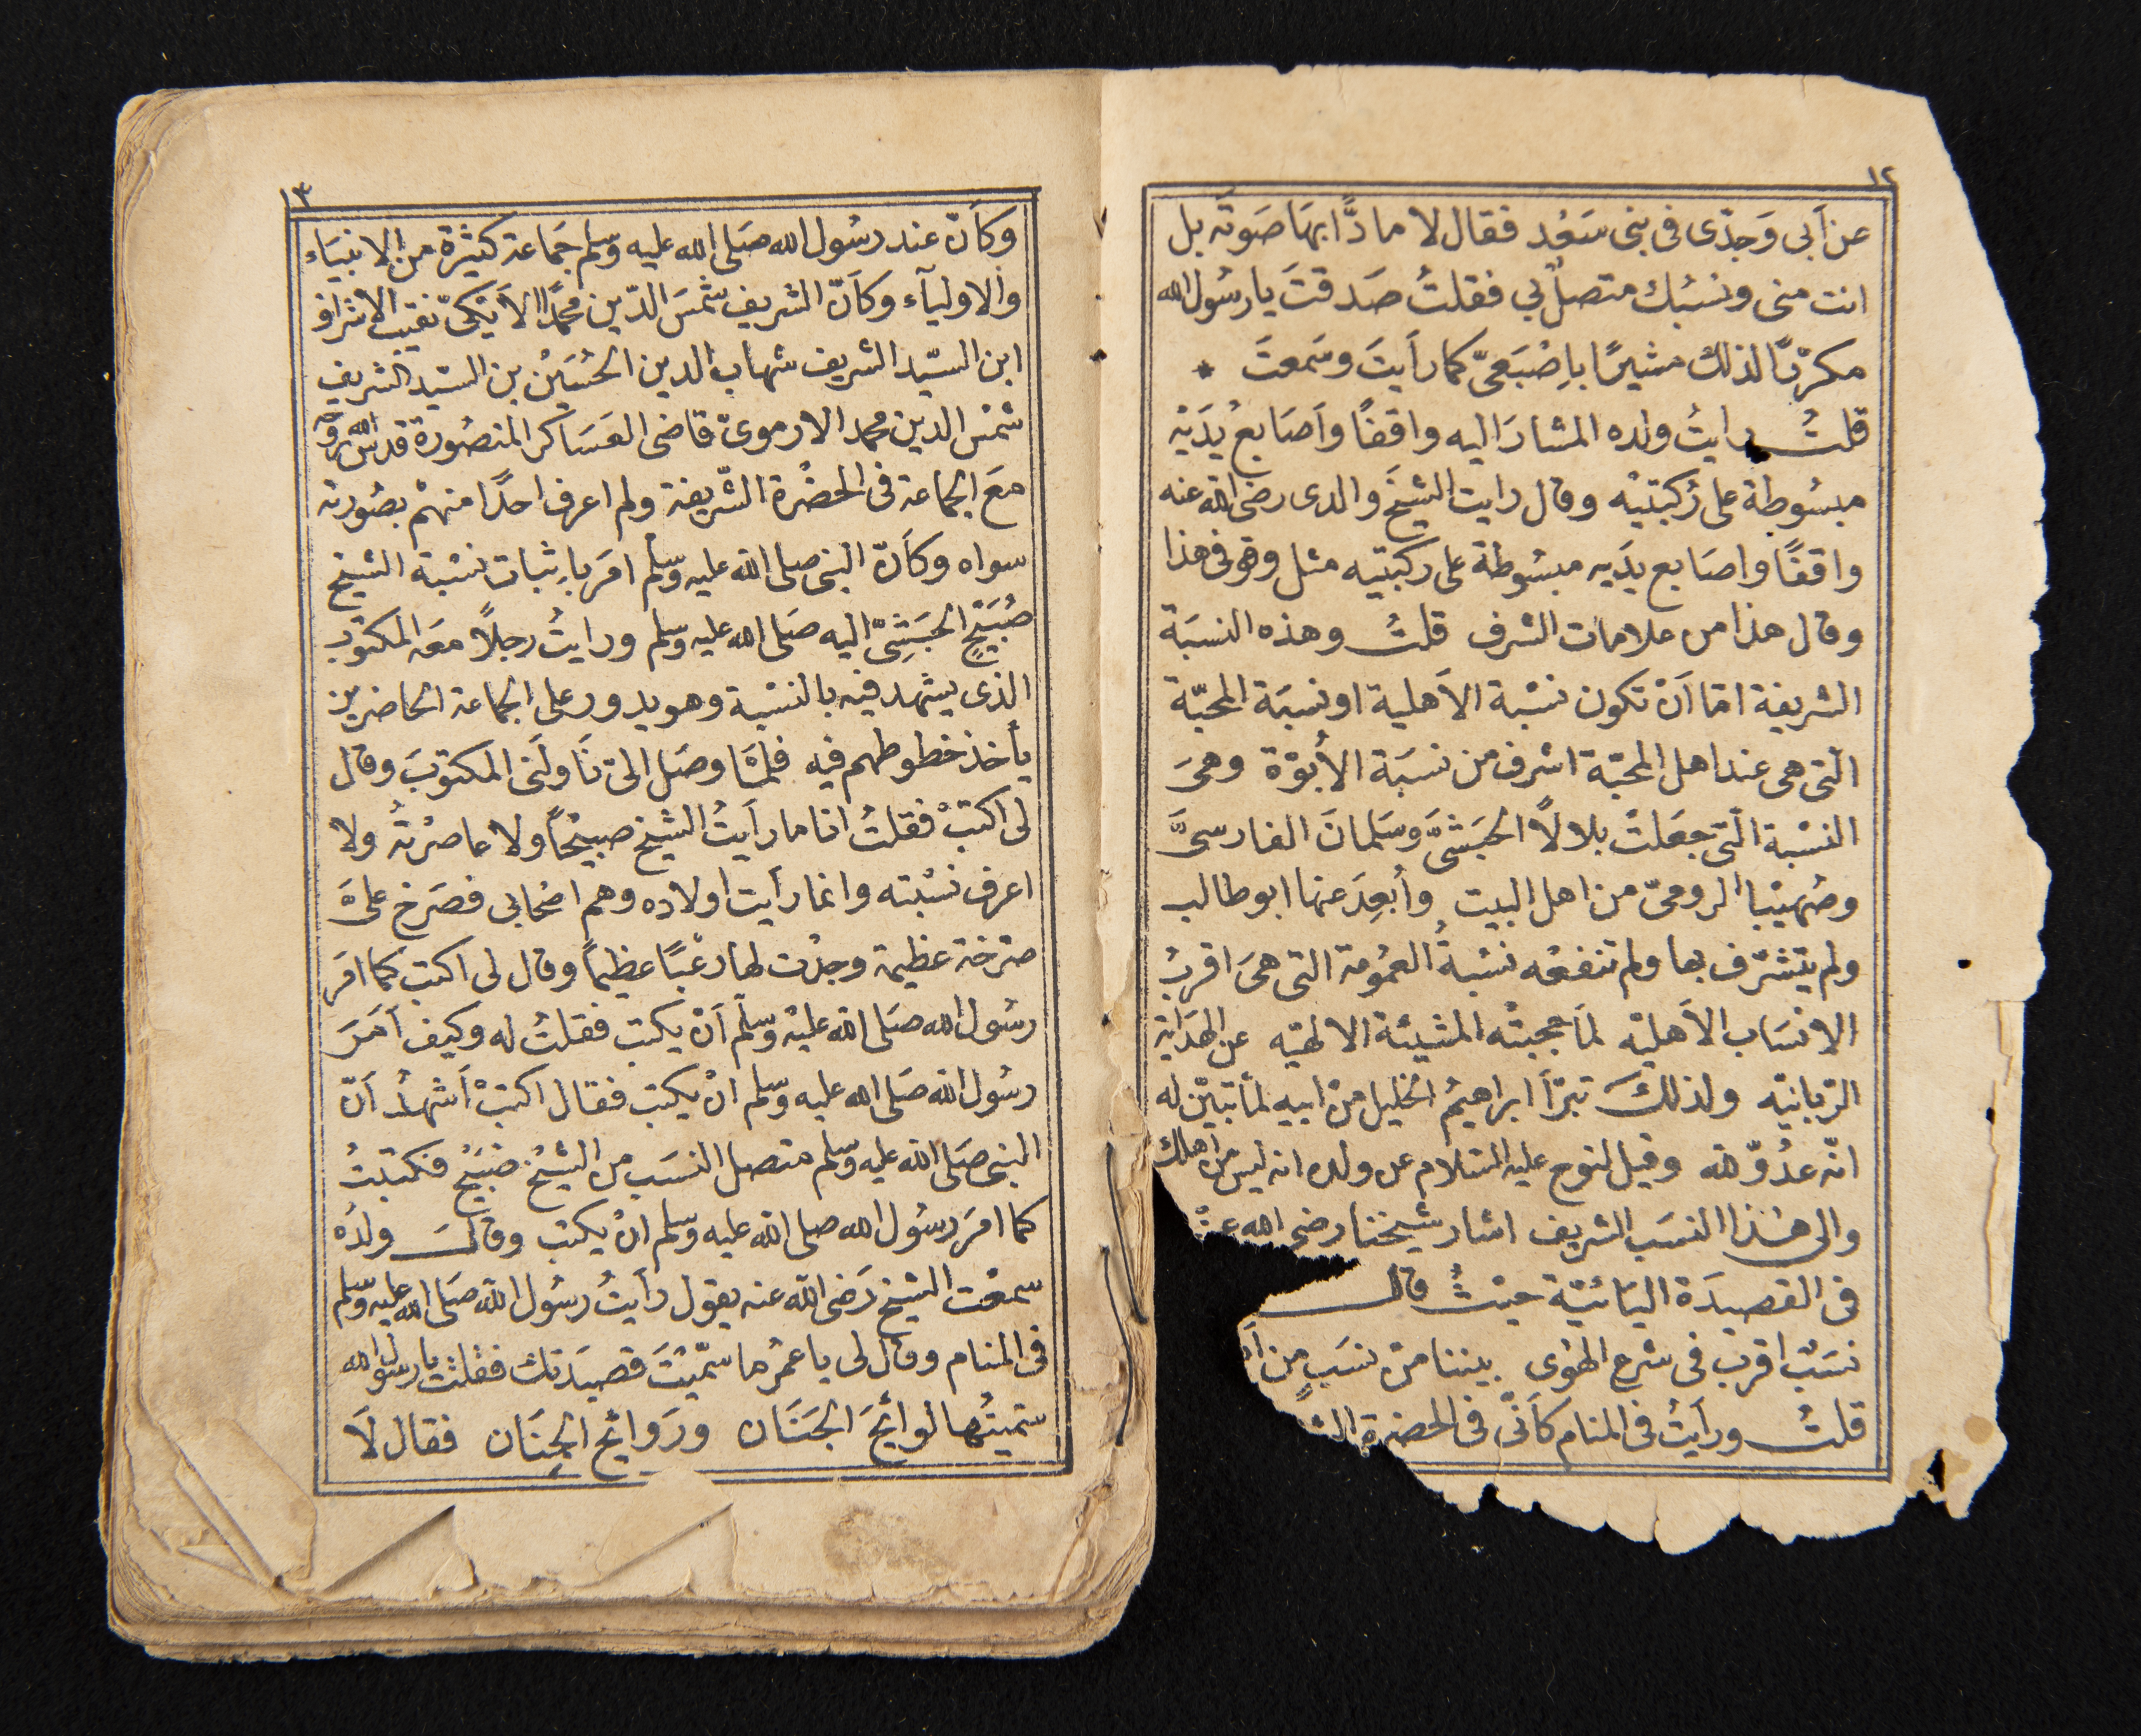 ١٢
عن اَبى وَجدّى فى بنى سَعْد فقال لا مادًّا بهَا صَوتَه بل
انت منى ونسَبُك متصلٌ بي فقلتُ صَدقتَ يا رسُول الله
مكرّرًا لذلك مشيرًا باِصْبَعىّ كما رَاَيتَ وسَمعتَ *
قلتُ رايتُ ولده المشارَ اليه واقفًا وَاَصَابعُ يَدَيْه
مبسُوطة على رُكبتيْه وقال رايت الشيخَ والدى رضى الله عنه
واقفًا واصَابع يدَيه مبسُوطة على ركبتيه مثل وقوفى هذا
وقال هذا من علامات الشرف قلتُ وهذه النسبَة
الشريفة امّا اَنْ تكون نسْبة الاَهلية او نسبَة المحبّة
التى هى عند اهل المحبّة اشرف من نسبَة الاُبوّة وهىَ
النسْبة الّتى جعَلتْ بلالاً الحبَشىَّ وسَلمانَ الفارسىَّ
وصُهيْبا الرومىّ من اهل البيت وأبعِدَ عنها ابو طالب
ولم يتشرّف بها ولم تنفعْه نسْبةُ العمُومَة التى هىَ اقربُ
الانسَاب الاَهليّه لمَا حجبتْه المشيئة الالهيّه عن الهدَاية
الرّبانيّه ولذلكَ تبرّأَ ابراهيمُ الخليل منْ ابيه لمّا تبيّن له
انّه عدُوّ لله وقيل لنوح عليه السّلام عن ولده انه ليس من اهلك
والى هٰذا النسَب الشريف اشار شيخنا رضى الله عنْ
فى القصيدَة اليَائيّة حيْثُ قال
نسَبٌ اقربُ فى شرع الهوٰى بيننا منْ نسَبٍ من
قلتُ ورأيتُ فى المنام كاَنّى فى الحضرة
١٣
وكاَنّ عند رسُول الله صَلى الله عليه وسلم جَمَاعة كثيْرة من الانبيَاء
والاوليآء وكاَنّ الشريف شمْسَ الدّين محمّدًا الاَيْكىّ نقيب الاشراف
ابن السّيد الشريف شهاب الدين الحُسَيْن بن السيّد الشريف
شمْس الدين محمد الارموىّ قاضى العَسَاكر المنصُورة قدس الله روحه
معَ الجماعة فى الحضْرة الشّريفة ولم اعرف احدًا منهمْ بصُورته
سواه وكاَنّ النبى صلى الله عليه وسلّم امَر باِثبات نسْبة الشيخ
صُبَيْحٍ الحَبَشِىّ اليه صَلى الله عليه وسلم ورايتُ رجلاً معَه المكتوُب
الذى يشهد فيْه بالنسْبة وهو يدور على الجماعة الحاضرين
يأخذ خطوطهم فيه فلمّا وصَل الىّ نَاوَلَنى المكتوُبَ وقال
لى اكتبْ فقلتُ انا ما رأيتُ الشيخ صبيحًا ولا عاصَرْتُه ولا
اعرف نسْبته وانما رأيت اولاده وهم اصْحابى فصَرخ علىَّ
صَرْخة عظيمة وجدْت لها رعْبًا عظيمًا وقال لى اكتب كما امَر
رسُول الله صَلى الله عليْه وسلّم اَنْ يكتب فقلتُ له وكيف اَمَرَ
رسُول الله صَلى الله عليه وسلم انْ يكتب فقال اكتبْ اَشهدُ اَنّ
النبى صَلى الله عليه وسلم متصل النسَب من الشيْخ صُبَيْح فكتبتُ
كما امَر رسُول الله صلى الله عليه وسلم انْ يكتب وقالَ ولدُه
سمعْت الشيخ رَضى الله عنه يقول رأيتُ رسُول الله صَلى الله عليه وسلم
فى المنام وقال لى يا عمَرُ ما سمّيْتَ قصيدَتك فقلت يا رسول الله
سميتُها لوائحَ الجَنَان ورَوائح الجِنَان فقال لاَ